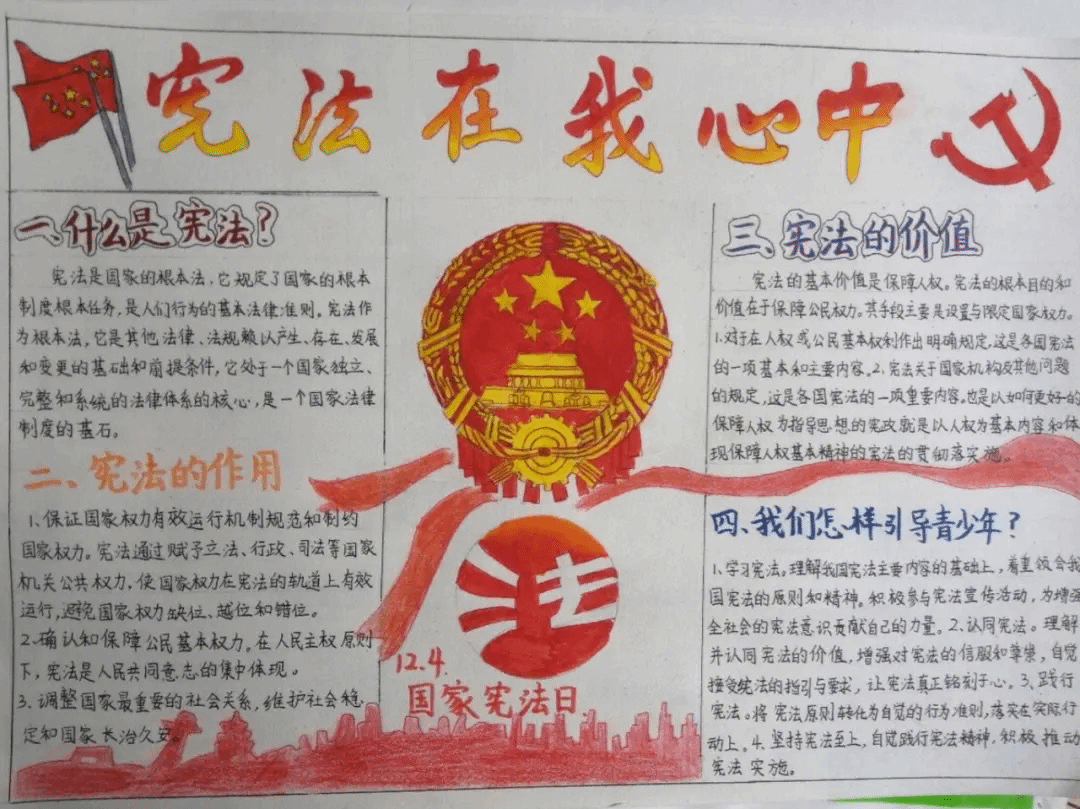 宪法在我心中
一、什么是宪法?
宪法是国家的根本法,它规定了国家的根本
制度根本任务,是人们行为的基本法律准则。宪法作
为根本法,它是其他法律、法规赖以产生、存在、发展
和变更的基础和前提条件,它处于一个国家独立、
完整和系统的法律体系的核心,是一个国家法律
制度的基石。
二、宪法的作用
1、保证国家权力有效运行机制规范和制约
国家权力。宪法通过赋予立法、行政、司法等国家
机关公共权力,使国家权力在宪法的轨道上有效
运行,避免国家权力缺位、越位和错位。
2.确认和保障公民基本权力。在人民主权原则
下,宪法是人民共同意志的集中体现。
3.调整国家最重要的社会关系,维护社会稳
定和国家长治久安。
法
12.4.
国家宪法日
三、宪法的价值
宪法的基本价值是保障人权。宪法的根本目的和
价值在于保障公民权力。其手段主要是设置与限定国家权力。
1.对于在人权或公民基本权利作出明确规定,这是各国宪法
的一项基本和主要内容。2、宪法关于国家机构及其他问题
的规定,这是各国宪法的一项重要内容,也是以如何更好的
保障人权为指导思想的宪政就是以人权为基本内容和体
现保障人权基本精神的宪法的贯彻落实施。
四、我们怎样引导青少年?
1.学习宪法。理解我国宪法主要内容的基础上,着重领会我
国宪法的原则和精神。积极参与宪法宣传活动,为增强
全社会的宪法意识贡献自己的力量。2、认同宪法。理解
并认同宪法的价值,增强对宪法的信服和尊崇,自觉
接受宪法的指引与要求,让宪法真正铭刻于心。3、践行
宪法。将宪法原则转化为自觉的行为准则,落实在实际行
动上。4、坚持宪法至上,自觉践行宪法精神,积极推动
宪法实施。